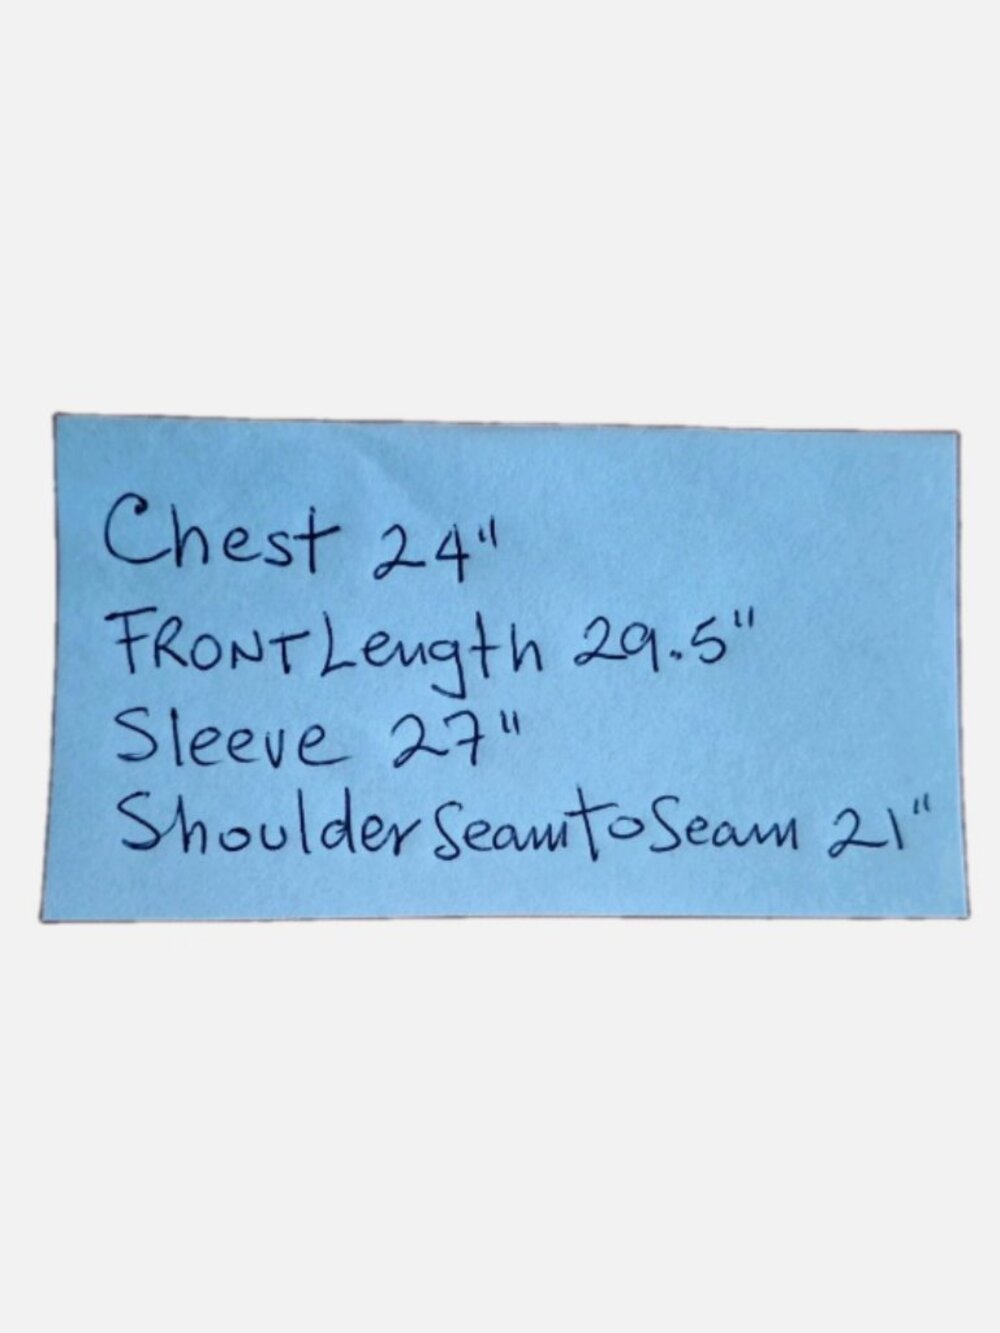 Chest 24"
FRONT Length 29.5"
Sleeve 27"
Shoulder Seam to Seam 21"